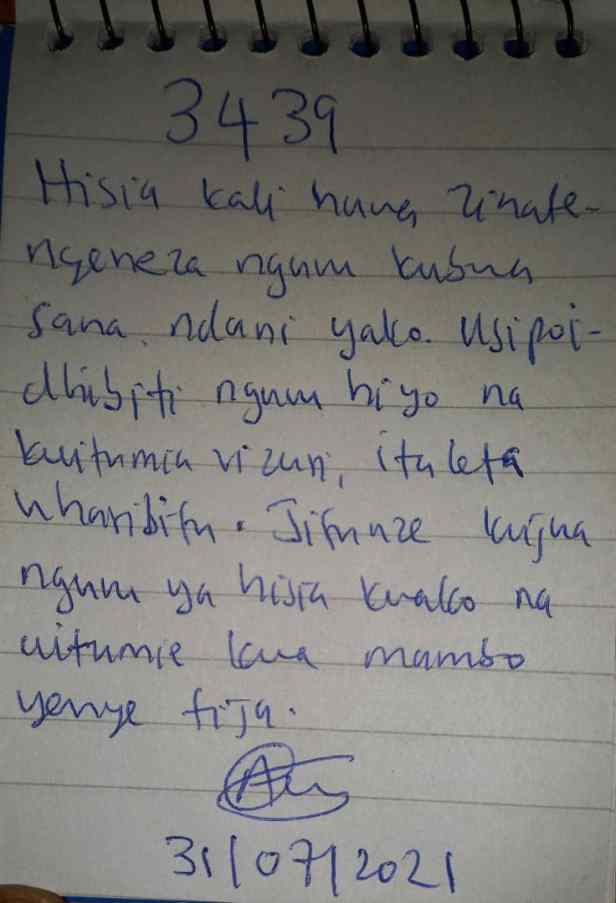 3439
Hisia kali huwa zinate-
ngeneza nguvu kubwa
sana ndani yako. Usipoi-
dhibiti nguvu hiyo na
kuitumia vizuri, italeta
uharibifu. Jifunze kuijua
nguvu ya hisia kwako na
uitumie kwa mambo
yenye tija.
31/07/2021